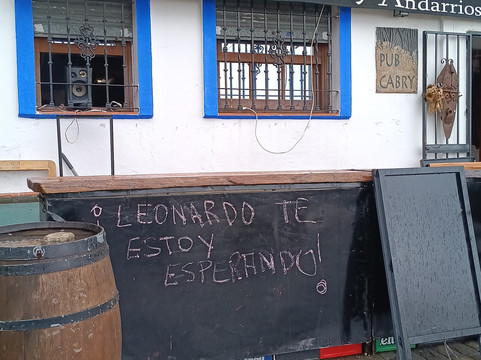 y Andarrios
PUB
CABRY
¡LEONARDO TE
ESTOY
ESPERANDO!